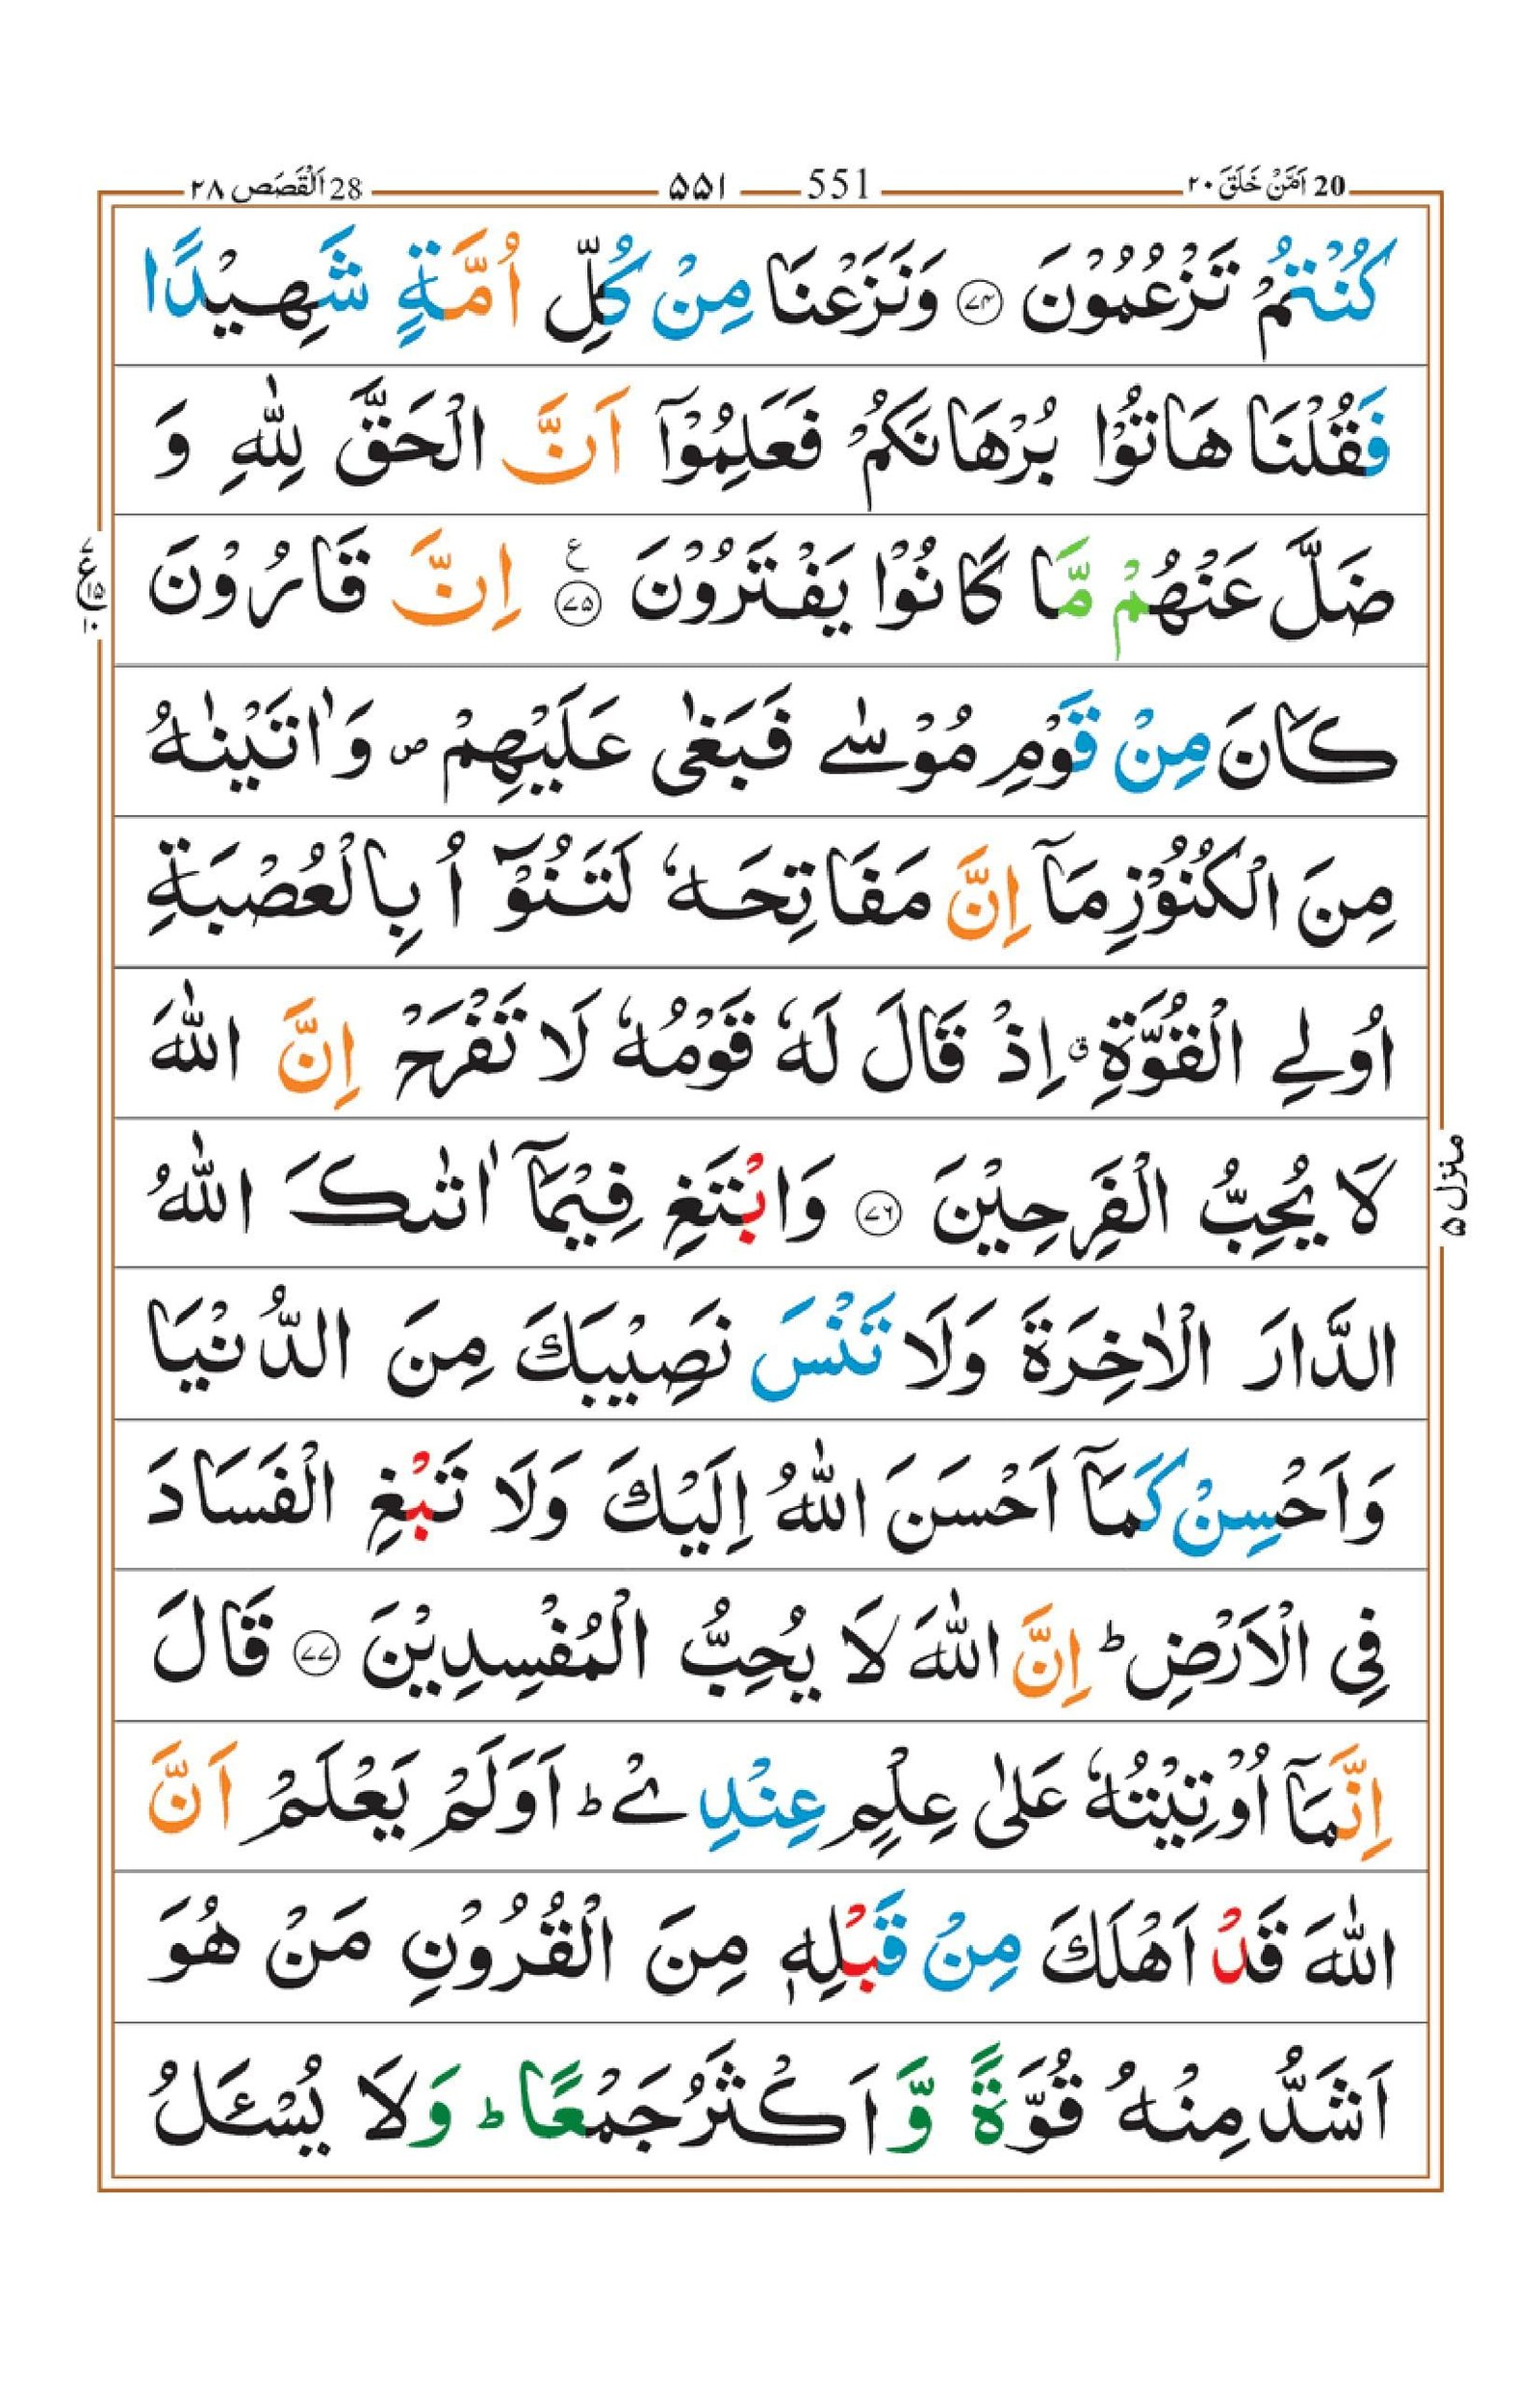 20 اَمَّنْ خَلَقَ ۲۰
551 ۵۵۱
28 اَلْقَصَص ۲۸
كُنْتُمْ تَزْعُمُوْنَ ۷۴ وَنَزَعْنَا مِنْ كُلِّ اُمَّةٍ شَهِيْدًا
فَقُلْنَا هَاتُوْا بُرْهَانَكُمْ فَعَلِمُوْۤا اَنَّ الْحَقَّ لِلّٰهِ وَ
ضَلَّ عَنْهُمْ مَّا كَانُوْا يَفْتَرُوْنَ ۷۵ ع اِنَّ قَارُوْنَ
ع ۷ ۱۵ ۱۰
كَانَ مِنْ قَوْمِ مُوْسٰى فَبَغٰى عَلَيْهِمْ ص وَاٰتَيْنٰهُ
مِنَ الْكُنُوْزِ مَاۤ اِنَّ مَفَاتِحَهٗ لَتَنُوْٓاُ بِالْعُصْبَةِ
اُولِى الْقُوَّةِ ق اِذْ قَالَ لَهٗ قَوْمُهٗ لَا تَفْرَحْ اِنَّ اللّٰهَ
لَا يُحِبُّ الْفَرِحِيْنَ ۷۶ وَابْتَغِ فِيْمَاۤ اٰتٰىكَ اللّٰهُ
منزل ۵
الدَّارَ الْاٰخِرَةَ وَلَا تَنْسَ نَصِيْبَكَ مِنَ الدُّنْيَا
وَاَحْسِنْ كَمَاۤ اَحْسَنَ اللّٰهُ اِلَيْكَ وَلَا تَبْغِ الْفَسَادَ
فِى الْاَرْضِ ؕ اِنَّ اللّٰهَ لَا يُحِبُّ الْمُفْسِدِيْنَ ۷۷ قَالَ
اِنَّمَاۤ اُوْتِيْتُهٗ عَلٰى عِلْمٍ عِنْدِىْ ؕ اَوَلَمْ يَعْلَمْ اَنَّ
اللّٰهَ قَدْ اَهْلَكَ مِنْ قَبْلِهٖ مِنَ الْقُرُوْنِ مَنْ هُوَ
اَشَدُّ مِنْهُ قُوَّةً وَّ اَكْثَرُ جَمْعًا ؕ وَلَا يُسْـَٔلُ